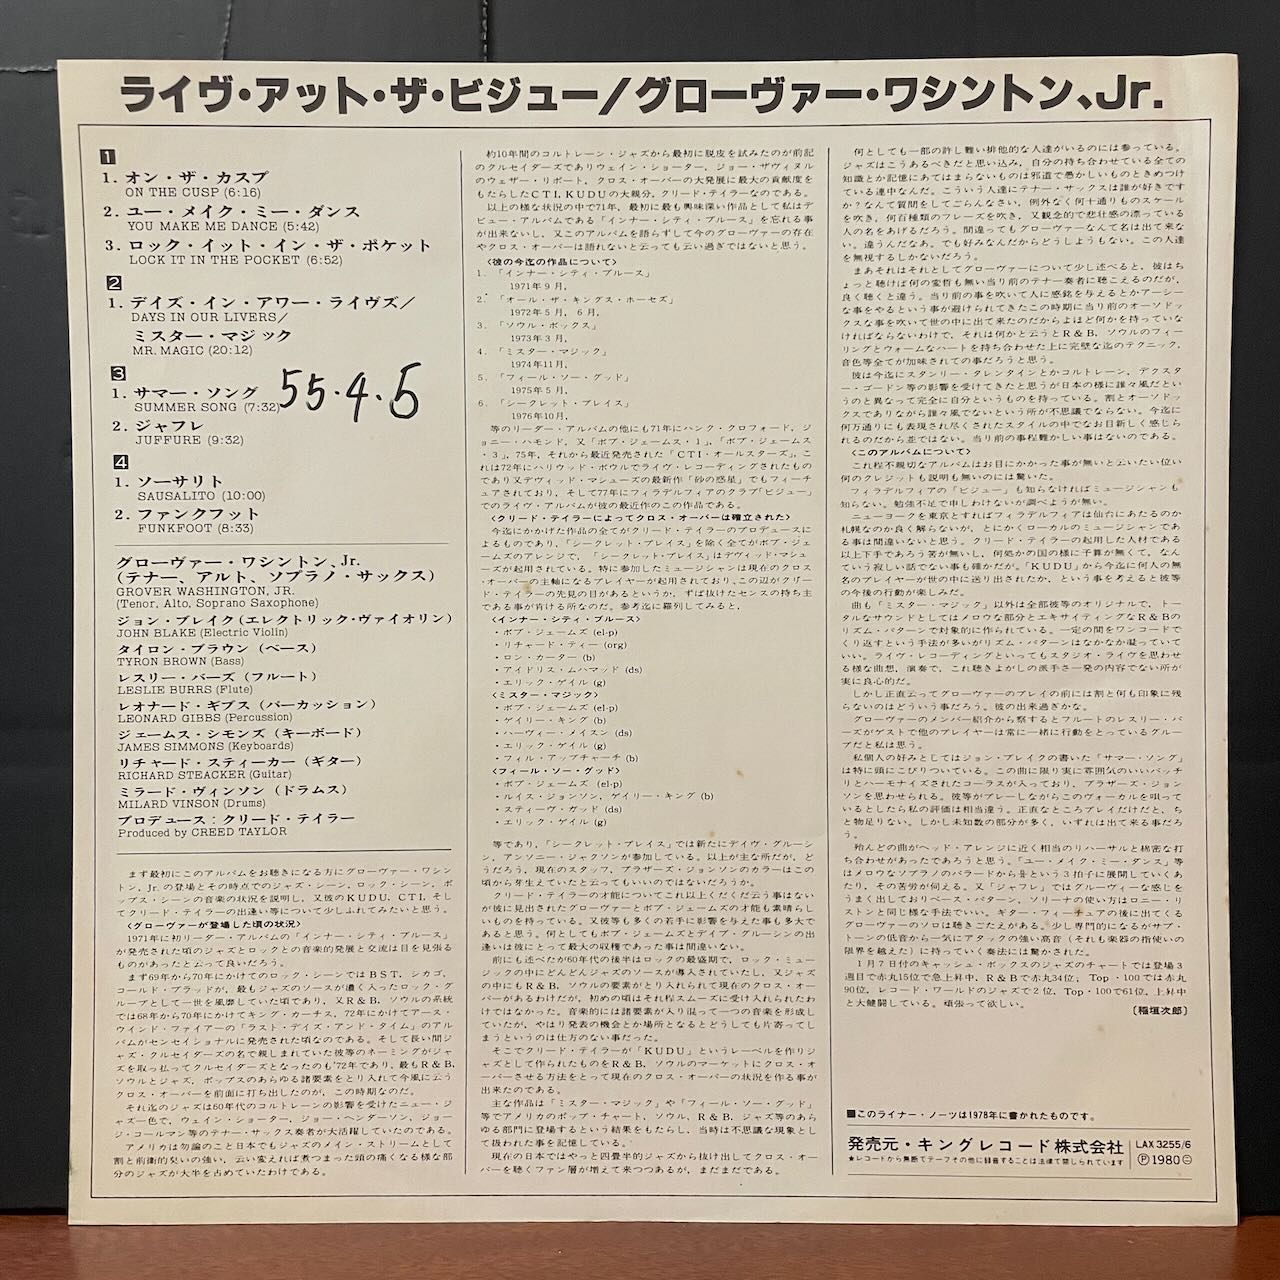 ライヴ・アット・ザ・ビジュー/グローヴァー・ワシントン、Jr.
1
1. オン・ザ・カスプ
ON THE CUSP (6:16)
2. ユー・メイク・ミー・ダンス
YOU MAKE ME DANCE (5:42)
3. ロック・イット・イン・ザ・ポケット
LOCK IT IN THE POCKET (6:52)
2
1. デイズ・イン・アワー・ライヴズ/
DAYS IN OUR LIVERS/
ミスター・マジック
MR. MAGIC (20:12)
3
1. サマー・ソング
SUMMER SONG (7:32)
55.4.5
2. ジャフレ
JUFFURE (9:32)
4
1. ソーサリト
SAUSALITO (10:00)
2. ファンクフット
FUNKFOOT (8:33)
グローヴァー・ワシントン、Jr.
(テナー、アルト、ソプラノ・サックス)
GROVER WASHINGTON, JR.
(Tenor, Alto, Soprano Saxophone)
ジョン・ブレイク(エレクトリック・ヴァイオリン)
JOHN BLAKE (Electric Violin)
タイロン・ブラウン (ベース)
TYRON BROWN (Bass)
レスリー・バーズ (フルート)
LESLIE BURRS (Flute)
レオナード・ギブス (パーカッション)
LEONARD GIBBS (Percussion)
ジェームス・シモンズ (キーボード)
JAMES SIMMONS (Keyboards)
リチャード・スティーカー (ギター)
RICHARD STEACKER (Guitar)
ミラード・ヴィンソン (ドラムス)
MILARD VINSON (Drums)
プロデュース:クリード・テイラー
Produced by CREED TAYLOR
まず最初にこのアルバムをお聴きになる方にグローヴァー・ワシン
トン, Jr.の登場とその時点でのジャズ・シーン, ロック・シーン, ポ
ップス・シーンの音楽の状況を説明し, 又彼のKUDU, CTI, そし
てクリード・テイラーの出逢い等について少しふれてみたいと思う。
<グローヴァーが登場した頃の状況>
1971年に初リーダー・アルバムの「インナー・シティ・ブルース」
が発売された頃のジャズとロックとの音楽的発展と交流は目を見張る
ものがあったと云って良いだろう。
まず69年から70年にかけてのロック・シーンではBST, シカゴ,
コールド・ブラッドが, 最もジャズのソースが濃く入ったロック・グ
ループとして一世を風靡していた頃であり, 又R&B, ソウルの系統
では68年から70年にかけてキング・カーチス, 72年にかけてアース・
ウインド・ファイアーの「ラスト・デイズ・アンド・タイム」のアル
バムがセンセイショナルに発売された頃なのである。そして長い間ジ
ャズ・クルセイダーズの名で親しまれていた彼等のネーミングがジャ
ズを取っ払ってクルセイダーズとなったのも'72年であり, 最もR&B,
ソウルとジャズ, ポップスのあらゆる諸要素をとり入れて今風に云う
クロス・オーバーを前面に打ち出したのが, この時期なのだ。
それ迄のジャズは60年代のコルトレーンの影響を受けたニュー・ジ
ャズ一色で, ウェイン・ショーター, ジョー・ヘンダーソン, ジョー
ジ・コールマン等のテナー・サックス奏者が大活躍していたのである。
アメリカは勿論のこと日本でもジャズのメイン・ストリームとして
割と前衛的臭いの強い, 云い変えれば煮つまった頭の痛くなる様な部
分のジャズが大半を占めていたわけである。
約10年間のコルトレーン・ジャズから最初に脱皮を試みたのが前記
のクルセイダーズでありウェイン・ショーター, ジョー・ザヴィヌル
のウェザー・リポート, クロス・オーバーの大発展に最大の貢献度を
もたらしたCTI, KUDUの大親分, クリード・テイラーなのである。
以上の様な状況の中で'71年, 最初に最も興味深い作品として私はデ
ビュー・アルバムである「インナー・シティ・ブルース」を忘れる事
が出来ないし, 又このアルバムを語らずして今のグローヴァーの存在
やクロス・オーバーは語れないと云っても云い過ぎではないと思う。
<彼の今迄の作品について>
1. 「インナー・シティ・ブルース」
1971年9月,
2. 「オール・ザ・キングス・ホーセズ」
1972年5月, 6月,
3. 「ソウル・ボックス」
1973年3月,
4. 「ミスター・マジック」
1974年11月,
5. 「フィール・ソー・グッド」
1975年5月,
6. 「シークレット・プレイス」
1976年10月,
等のリーダー・アルバムの他にも71年にハンク・クロフォード, ジ
ョニー・ハモンド, 又「ボブ・ジェームス・1」, 「ボブ・ジェームス
・3」, 75年, それから最近発売された「CTI・オールスターズ」, こ
れは72年にハリウッド・ボウルでライヴ・レコーディングされたもの
であり又デヴィッド・マシューズの最新作「砂の惑星」でもフィーチ
ュアされており, そして77年にフィラデルフィアのクラブ「ビジュー」
でのライヴ・アルバムが彼の最近作のこの作品である。
<クリード・テイラーによってクロス・オーバーは確立された>
今迄にかかげた作品の全てがクリード・テイラーのプロデュースに
よるものであり, 「シークレット・プレイス」を除く全てがボブ・ジェ
ームズのアレンジで, 「シークレット・プレイス」はデヴィッド・マシュ
ーズが起用されている。特に参加したミュージシャンは現在のクロス
・オーバーの主軸になるプレイヤーが起用されており, この辺がクリー
ド・テイラーの先見の目があるというか, ずば抜けたセンスの持ち主
である事が肯ける所なのだ。参考迄に羅列してみると,
<インナー・シティ・ブルース>
・ボブ・ジェームズ (el-p)
・リチャード・ティー (org)
・ロン・カーター (b)
・アイドリス・ムハマッド (ds)
・エリック・ゲイル (g)
<ミスター・マジック>
・ボブ・ジェームズ (el-p)
・ゲイリー・キング (b)
・ハーヴィー・メイスン (ds)
・エリック・ゲイル (g)
・フィル・アップチャーチ (b)
<フィール・ソー・グッド>
・ボブ・ジェームズ (el-p)
・ルイス・ジョンソン, ゲイリー・キング (b)
・スティーヴ・ガッド (ds)
・エリック・ゲイル (g)
等であり, 「シークレット・プレイス」では新たにデイヴ・グルーシ
ン, アンソニー・ジャクソンが参加している。以上が主な所だが, ど
うだろう, 現在のスタッフ, ブラザーズ・ジョンソンのカラーはこの
頃から芽生えていたと云ってもいいのではないだろうか。
クリード・テイラーの才能についてこれ以上くだくだ云う事はない
が彼に見出されたグローヴァーとボブ・ジェームズの才能も素晴らし
いものを持っている。又彼等も多くの若手に影響を与えた事も多大で
あると思う。何としてもボブ・ジェームズとデイブ・グルーシンの出
逢いは彼にとって最大の収穫であった事は間違いない。
前にも述べたが60年代の後半はロックの最盛期で, ロック・ミュー
ジックの中にどんどんジャズのソースが導入されていたし, 又ジャズ
の中にもR&B, ソウルの要素がとり入れられて現在のクロス・オー
バーがあるわけだが, 初めの頃はそれ程スムーズに受け入れられたわ
けではなかった。音楽的には諸要素が入り混って一つの音楽を形成し
ていたが, やはり発表の機会とか場所となるとどうしても片寄ってし
まうというのは仕方のない事だった。
そこでクリード・テイラーが「KUDU」というレーベルを作りジ
ャズとして作られたものをR&B, ソウルのマーケットにクロス・オ
ーバーさせる方法をとって現在のクロス・オーバーの状況を作る事が
出来たのである。
主な作品は「ミスター・マジック」や「フィール・ソー・グッド」
等でアメリカのポップ・チャート, ソウル, R&B, ジャズ等のあら
ゆる部門に登場するという結果をもたらし, 当時は不思議な現象とし
て扱われた事を記憶している。
現在の日本ではやっと四畳半的ジャズから抜け出してクロス・オー
バーを聴くファン層が増えて来つつあるが, まだまだである。
何としても一部の許し難い排他的な人達がいるのには参っている。
ジャズはこうあるべきだと思い込み, 自分の持ち合わせている全ての
知識とか記憶にあてはまらないものは邪道で愚かしいものときめつけ
ている連中なんだ。こういう人達にテナー・サックスは誰が好きです
か?なんて質問をしてごらんなさい, 例外なく何十通りものスケール
を吹き, 何百種類のフレーズを吹き, 又観念的で悲壮感の漂っている
人の名をあげるだろう。間違ってもグローヴァーなんて名は出て来な
い。違うんだなあ。でも好みなんだからどうしようもない。この人達
を無視するしかないだろう。
まあそれはそれとしてグローヴァーについて少し述べると, 彼はち
ょっと聴けば何の変哲も無い当り前のテナー奏者に聴こえるのだが,
良く聴くと違う。当り前の事を吹いて人に感銘を与えるとかアーシー
な事をやるという事が避けられてきたこの時期に当り前のオーソドッ
クスな事を吹いて世の中に出て来たのだからよほど何かを持っていな
ければならないわけで, それは何かと云うとR&B, ソウルのフィー
リングとウォームなハートを持ち合わせた上に完璧な迄のテクニック,
音色等全てが加味されての事だろうと思う。
彼は今迄にスタンリー・タレンタインとかコルトレーン, デクスタ
ー・ゴードン等の影響を受けてきたと思うが日本の様に誰々風だとい
うのと異なって完全に自分というものを持っている。割とオーソドッ
クスでありながら誰々風でないという所が不思議でならない。今迄に
何万通りにも表現され尽くされたスタイルの中でなお目新しく感じら
れるのだから並ではない。当り前の事程難かしい事はないのである。
<このアルバムについて>
これ程不親切なアルバムはお目にかかった事が無いと云いたい位い
何のクレジットも説明も無いのには驚いた。
フィラデルフィアの「ビジュー」も知らなければミュージシャンも
知らない。勉強不足で申しわけないが調べようが無い。
ニューヨークを東京とすればフィラデルフィアは仙台にあたるのか
札幌なのか良く解らないが, とにかくローカルのミュージシャンであ
る事は間違いないと思う。クリード・テイラーの起用した人材である
以上下手であろう筈が無いし, 何処かの国の様に予算が無くて, なん
ていう寂しい話でない事も確かだが。「KUDU」から今迄に何人の無
名のプレイヤーが世の中に送り出されたか, という事を考えると彼等
の今後の行動が楽しみだ。
曲も「ミスター・マジック」以外は全部彼等のオリジナルで, トー
タルなサウンドとしてはメロウな部分とエキサイティングなR&Bの
リズム・パターンで対象的に作られている。一定の間をワンコードで
くり返すという手法が多いがリズム・パターンはなかなか凝っていて
いい。ライヴ・レコーディングといってもスタジオ・ライヴを思わせ
る様な曲想, 演奏で, これ聴きよがしの派手さ一発の内容でない所が
実に良心的だ。
しかし正直云ってグローヴァーのプレイの前には割と何も印象に残
らないのはどういう事だろう。彼の出来過ぎかな。
グローヴァーのメンバー紹介から察するとフルートのレスリー・バ
ーズがゲストで他のプレイヤーは常に一緒に行動をとっているグルー
プだと私は思う。
私個人の好みとしてはジョン・ブレイクの書いた「サマー・ソング」
は特に頭にこびりついている。この曲に限り実に雰囲気のいいバッチ
リとハーモナイズされたコーラスが入っており, ブラザーズ・ジョン
ソンを思わせられる。彼等がプレーしながらこのヴォーカルを唄って
いるとしたら私の評価は相当違う。正直なところプレイだけだと, ち
と物足りない。しかし未知数の部分が多く, いずれは出て来る事だろ
う。
殆んどの曲がヘッド・アレンジに近く相当のリハーサルと綿密な打
ち合わせがあったであろうと思う。「ユー・メイク・ミー・ダンス」等
はメロウなソプラノのバラードから8という3拍子に展開していくあ
たり, その苦労が伺える。又「ジャフレ」ではグルーヴィーな感じを
うまく出しておりベース・ソリーナの使い方はロニー・リ
ストンと同じ様な手法でいい。ギター・フィーチュアの後に出てくる
グローヴァーのソロは聴きごたえがある。少し専門的になるがサブ・
トーンの低音から一気にアタックの強い高音(それも楽器の指使いの
限界を越えた)に持っていく奏法には驚かされた。
1月7日付のキャッシュ・ボックスのジャズのチャートでは登場3
週目で赤丸15位で急上昇中, R&Bで赤丸34位, Top・100では赤丸
90位, レコード・ワールドのジャズで2位, Top・100で61位, 上昇中
と大健闘している。頑張って欲しい。
〔稲垣次郎〕
■このライナー・ノーツは1978年に書かれたものです。
発売元・キングレコード株式会社
★レコードから無断でテープその他に録音することは法律で禁じられています
LAX 3255/6
Ⓟ1980